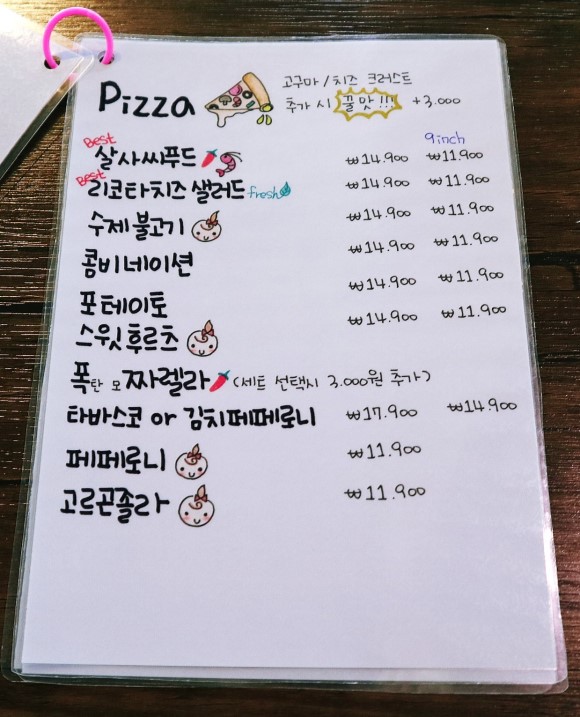 Pizza 고구마/치즈 크러스트
추가 시 꿀맛!!! +3.000
9inch
Best 살사씨푸드 ₩14.900 ₩11.900
Best 리코타치즈 샐러드 fresh ₩14.900 ₩11.900
수제 불고기 ₩14.900 ₩11.900
콤비네이션 ₩14.900 ₩11.900
포테이토 ₩14.900 ₩11.900
스윗후르츠 ₩14.900 ₩11.900
폭탄 모짜렐라 (세트 선택시 3.000원 추가)
타바스코 or 김치페페로니 ₩17.900 ₩14.900
페페로니 ₩11.900
고르곤졸라 ₩11.900